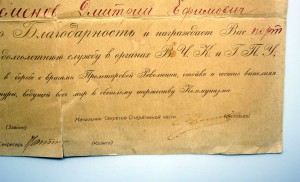 еменов Дмитрий Ефимович
Благодарность и награждает Вас порт
долголетнюю службу в органах В Ч К и Г П У.
в борьбе с врагами Пролетарской Революции, стойко и честно выполняя
туры, ведущей весь мир к светлому торжеству Коммунизма
Начальник Секретно-Оперативной части
Секретарь